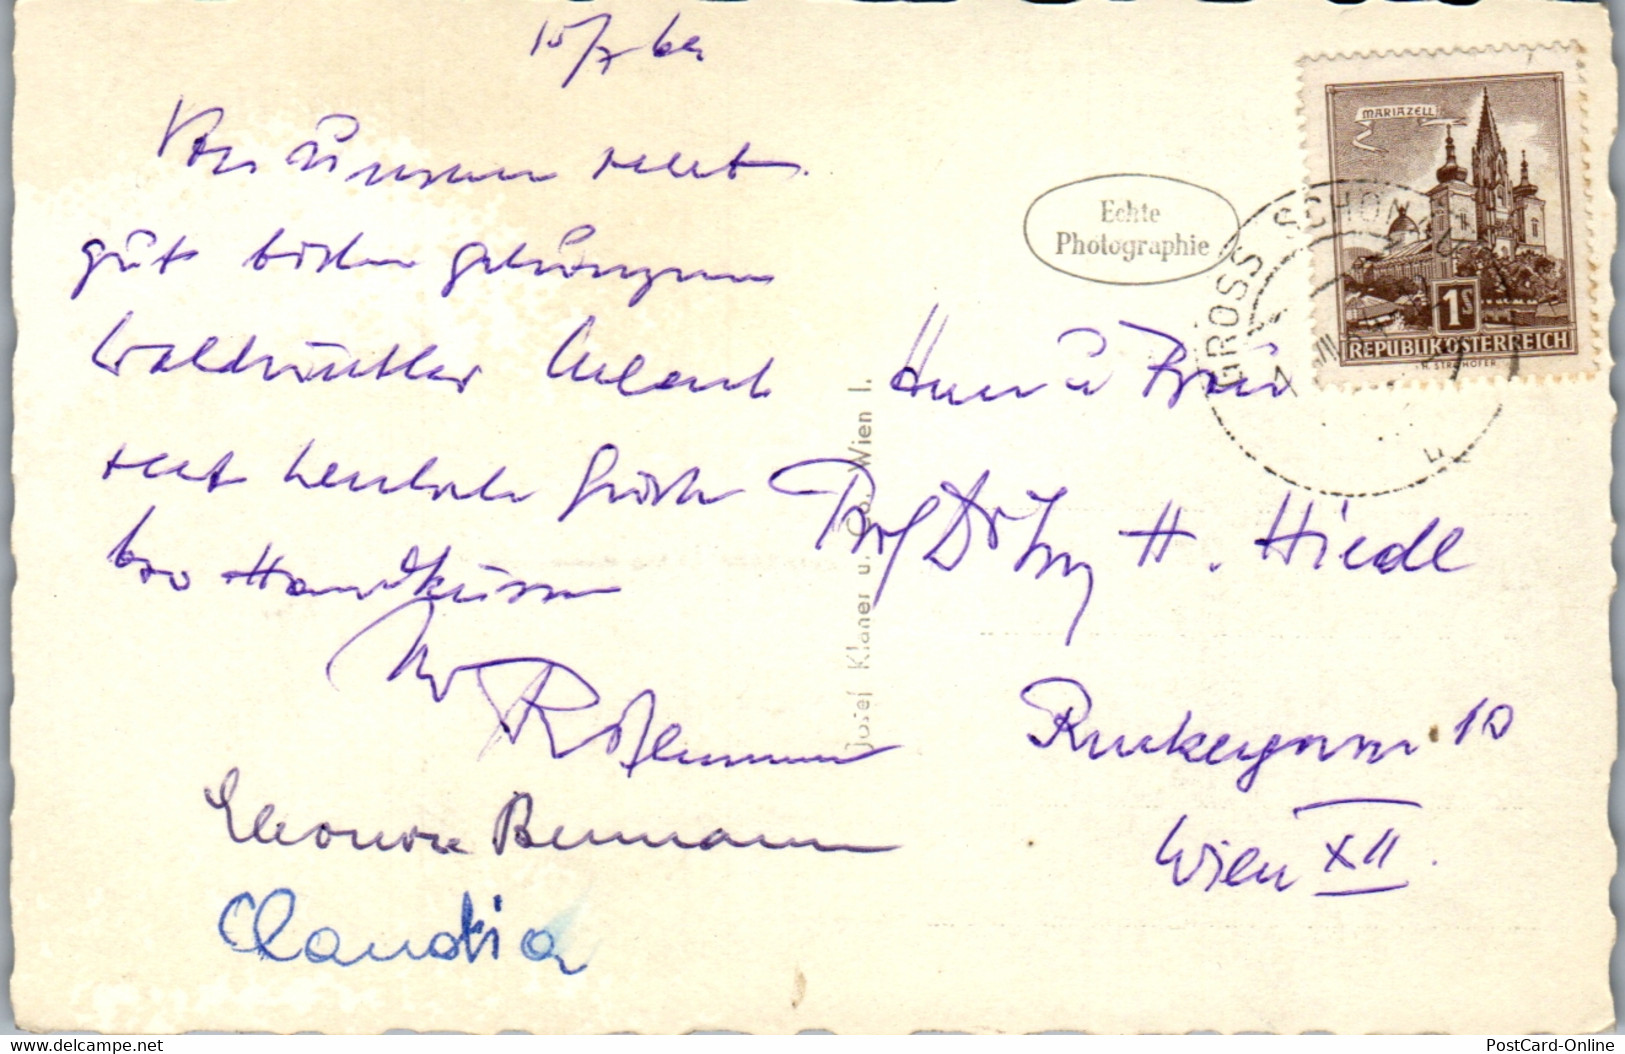 15/7 60
Von unserem recht
gut bisher gelungenen
Waldviertler Urlaub
recht herzliche Grüße
bzw Handküsse
Ihr
Eleonore Bermann
Claudia
Echte
Photographie
Josef Klaner u. Co. Wien I.
MARIAZELL
1S
REPUBLIK ÖSTERREICH
GROSS SCHÖN
Herrn u Frau
Prof Dr Ing H. Hiedl
Ruckergasse 10
Wien XII.
PostCard-Online
www.delcampe.net